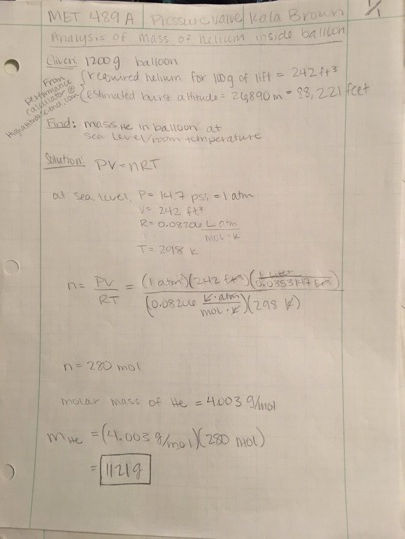 MET 489A Pressure Valve Kala Brown 1/1
Analysis of Mass of helium inside balloon
Given: 1200g balloon
From performance calculator @
required helium for 100g of lift = 242 ft³
estimated burst altitude = 26890 m = 88,221 feet
Find: mass He in balloon at
sea level/room temperature
Solution: PV=nRT
at sea level, P= 14.7 psi = 1 atm
V= 242 ft³
R= 0.08206 L·atm
mol·K
T= 298 K
n= PV = (1 atm)(242 ft³)(1 Liter
RT 0.0353147 ft³)
(0.08206 L·atm
mol·K)(298 K)
n= 280 mol
molar mass of He = 4.003 g/mol
mHe = (4.003 g/mol)(280 mol)
= 1121g